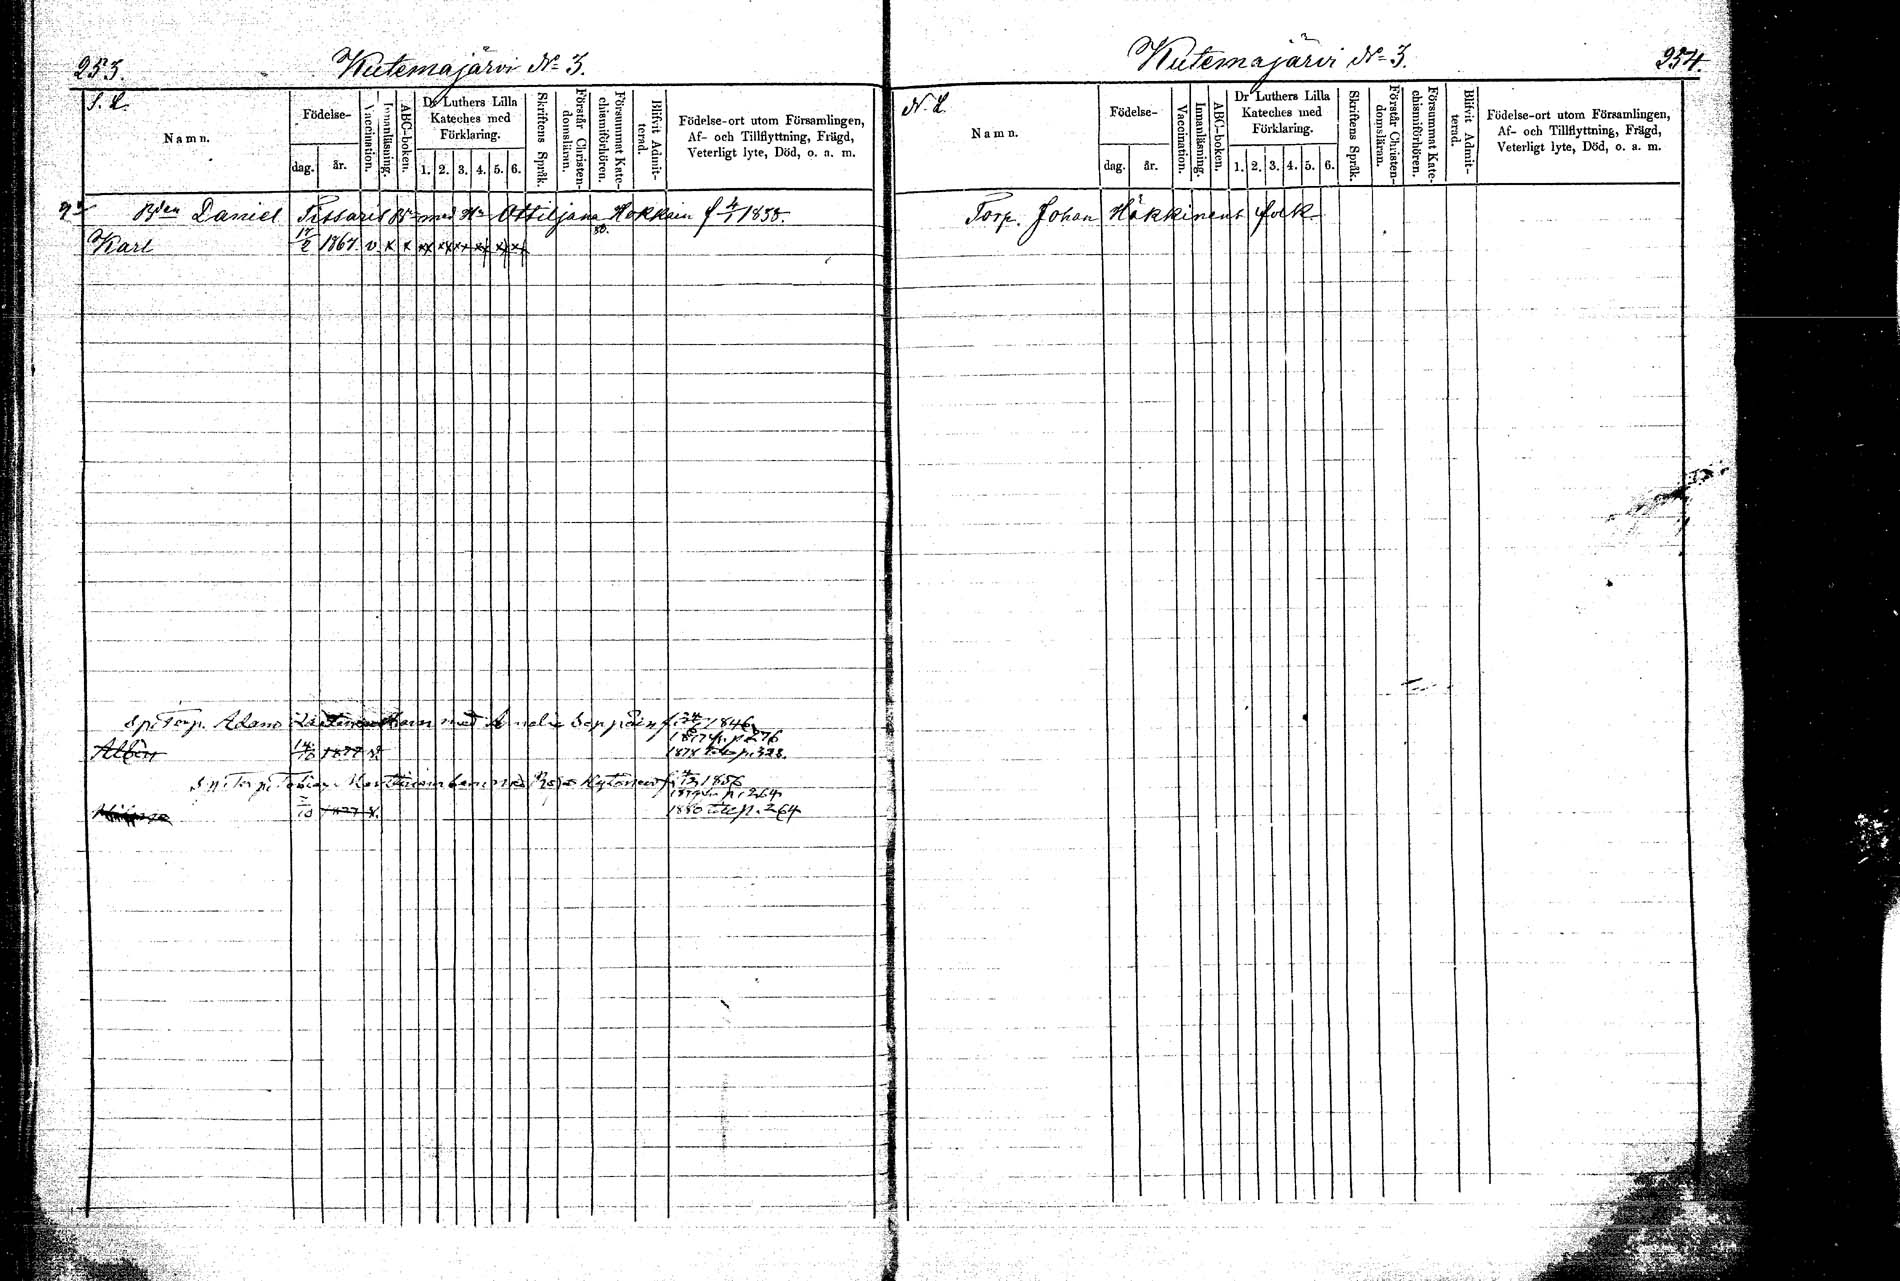 253.
Wutemajärvi No 3.
S. L.
Namn.
Födelse-
dag. år.
Vaccination.
Innanläsning.
ABC-boken.
Dr Luthers Lilla
Kateches med
Förklaring.
1. 2. 3. 4. 5. 6.
Skriftens Språk.
Förstår Christen-
domslänn.
Försummat Kate-
chismiförhören.
Blifvit Admit-
terad.
Födelse-ort utom Församlingen,
Af- och Tillflyttning, Frägd,
Veterligt lyte, Död, o. a. m.
Bden Daniel Tissaris Bn med Hu Ottiljana Hokkain f 4/1 1838.
Karl 17/2 1867. v x x
Sp. Torp. Adam barn med Amalia Seppäin f. 1846
p. 276
Albin 1877 v. 1878 p. 328.
barn med 1856
p. 264
10 1877 v. 1880 p. 264
Wutemajärvi No 3.
254.
N. L.
Namn.
Födelse-
dag. år.
Vaccination.
Innanläsning.
ABC-boken.
Dr Luthers Lilla
Kateches med
Förklaring.
1. 2. 3. 4. 5. 6.
Skriftens Språk.
Förstår Christen-
domsläran.
Försummat Kate-
chismiförhören.
Blifvit Admit-
terad.
Födelse-ort utom Församlingen,
Af- och Tillflyttning, Frägd,
Veterligt lyte, Död, o. a. m.
Torp. Johan Häkkinens folk